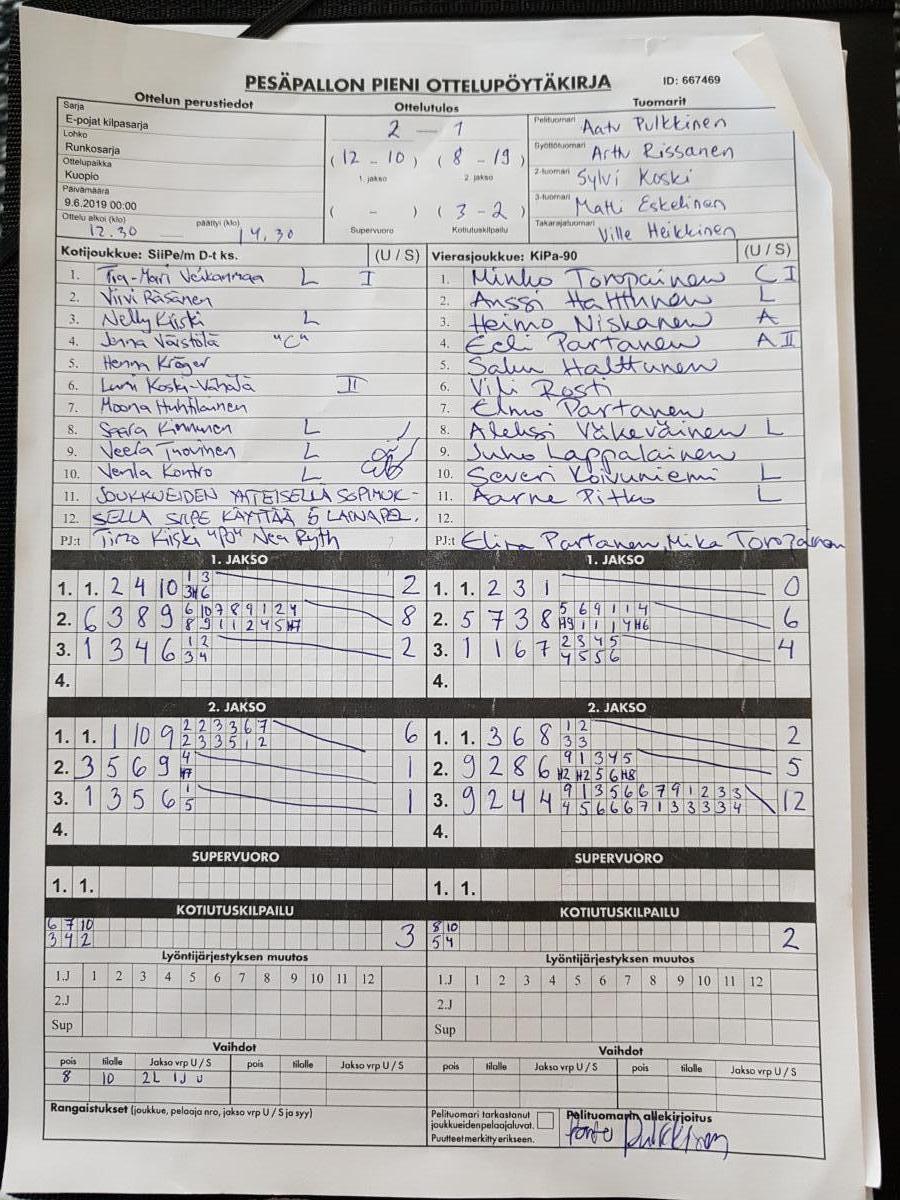 PESÄPALLON PIENI OTTELUPÖYTÄKIRJA
ID: 667469
Ottelun perustiedot
Ottelutulos
Tuomarit
Sarja
E-pojat kilpasarja
Lohko
Runkosarja
Ottelupaikka
Kuopio
Päivämäärä
9.6.2019 00:00
Ottelu alkoi (klo) päättyi (klo)
12.30 14.30
2 - 1
(12 - 10) (8 - 19)
1. jakso 2. jakso
( - ) (3 - 2)
Supervuoro Kotiutuskilpailu
Pelituomari Aatu Pulkkinen
Syöttötuomari Arttu Rissanen
2-tuomari Sylvi Koski
3-tuomari Matti Eskelinen
Takarajatuomari Ville Heikkinen
Kotijoukkue: SiiPe/m D-t ks. (U / S)
1. Tia-Mari L I
2. Virvi Räsänen
3. Nelly Kiiski L
4. Jenna Väistölä "C"
5. Henna Kröger
6. Lumi Koski-Vähälä II
7. Moona Huhtilainen
8. Saara Kinnunen L
9. Veera Tuovinen L
10. Venla Kontro L
11. JOUKKUEIDEN YHTEISELLÄ SOPIMUK-
12. SELLA SIIPE KÄYTTÄÄ 5 LAINAPEL.
PJ:t Kiiski "PJ" Nea Ryth
Vierasjoukkue: KiPa-90 (U / S)
1. Minko Toropainen C I
2. Anssi Halttunen L
3. Heimo Niskanen A
4. Eeli Partanen A II
5. Salu Halttunen
6. Vili Rosti
7. Elmo Partanen
8. Aleksi Väkeväinen L
9. Juho Lappalainen
10. Severi Koivuniemi L
11. Aarne Pitko L
12.
PJ:t Elina Partanen, Mika Toropainen
1. JAKSO
1. 1. 2 4 10 1 3 2
3 H6
2. 6 3 8 9 6 10 7 8 9 1 2 4 8
8 9 1 1 2 4 5 H7
3. 1 3 4 6 1 2 2
3 4
4.
1. JAKSO
1. 1. 2 3 1 0
2. 5 7 3 8 5 6 9 1 1 4 6
H9 1 1 1 4 H6
3. 1 1 6 7 2 3 4 5 4
4 5 5 6
4.
2. JAKSO
1. 1. 1 10 9 2 2 3 3 6 7 6
2 3 3 5 1 2
2. 3 5 6 9 4 1
H7
3. 1 3 5 6 1 1
5
4.
2. JAKSO
1. 1. 3 6 8 1 2 2
3 3
2. 9 2 8 6 9 1 3 4 5 5
H2 H2 5 6 H8
3. 9 2 4 4 9 1 3 5 6 6 7 9 1 2 3 3 12
4 5 6 6 6 7 1 3 3 3 3 4
4.
SUPERVUORO
1. 1.
SUPERVUORO
1. 1.
KOTIUTUSKILPAILU
6 7 10 3
3 4 2
KOTIUTUSKILPAILU
8 10 2
5 4
Lyöntijärjestyksen muutos
1.J 1 2 3 4 5 6 7 8 9 10 11 12
2.J
Sup
Lyöntijärjestyksen muutos
1.J 1 2 3 4 5 6 7 8 9 10 11 12
2.J
Sup
Vaihdot
pois tilalle Jakso vrp U / S pois tilalle Jakso vrp U / S
8 10 2L 1J U
Vaihdot
pois tilalle Jakso vrp U / S pois tilalle Jakso vrp U / S
Rangaistukset (joukkue, pelaaja nro, jakso vrp U / S ja syy)
Pelituomari tarkastanut
joukkueiden pelaajaluvat.
Puutteet merkitty erikseen.
Pelituomarin allekirjoitus
Pulkkinen